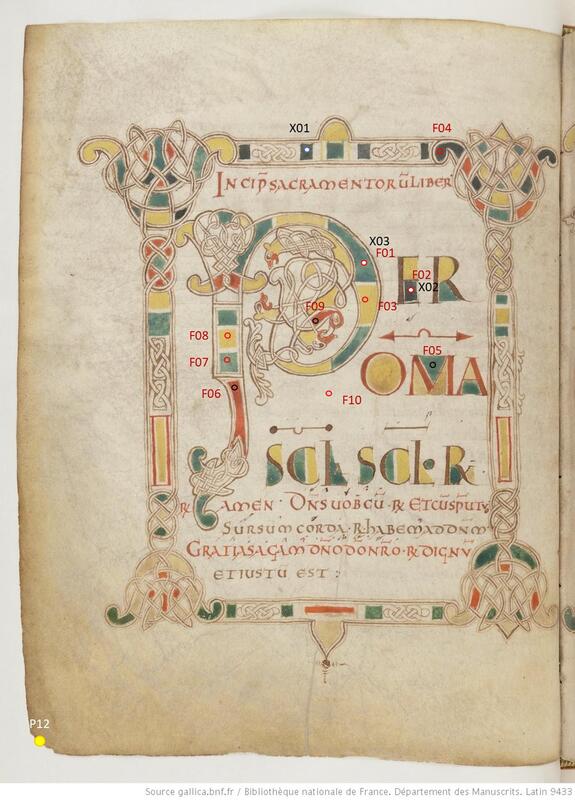 X01
F04
INCIP̄ SACRAMENTORŪ LIBER
X03
F01
PER
F02
X02
F03
F09
F08
F07
F05
OMA
F06
F10
SCLA SCLOR
R AMEN DN̄S UOBCŪ R ET CŪ SPŪ TV
SURSUM CORDA R HABEM ADDNM
GRATIAS AGAM DNO DO NRO R DIGNV
ET IUSTU EST :
P12
Source gallica.bnf.fr / Bibliothèque nationale de France. Département des Manuscrits. Latin 9433